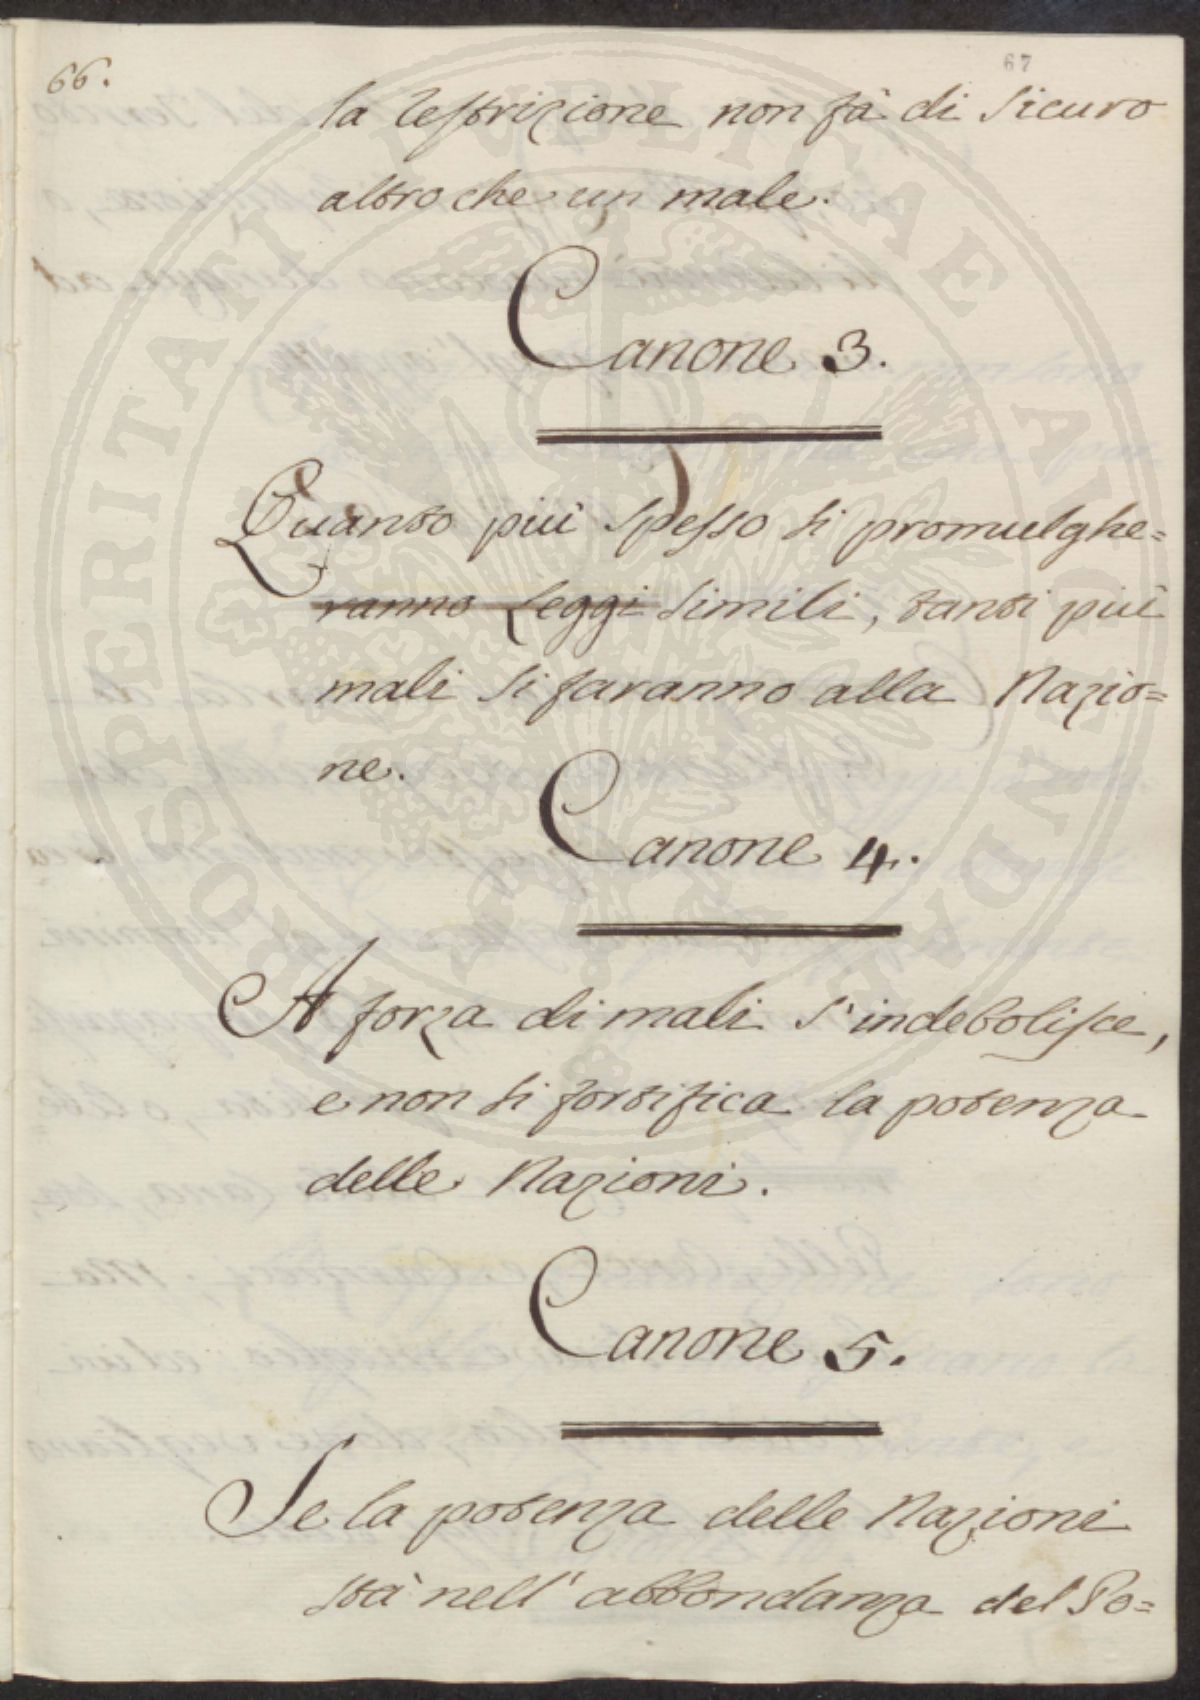 66.
67
la restrizione non fà di sicuro
altro che un male.
Canone 3.
Quanto più spesso si promulghe=
ranno Leggi simili, tanti più
mali si faranno alla Nazio=
ne.
Canone 4.
A forza di mali s'indebolisce,
e non si fortifica la potenza
delle Nazioni.
Canone 5.
Se la potenza delle Nazioni
stà nell'abbondanza del Po=
PROSPERITATI PUBLICAE AUGENDAE